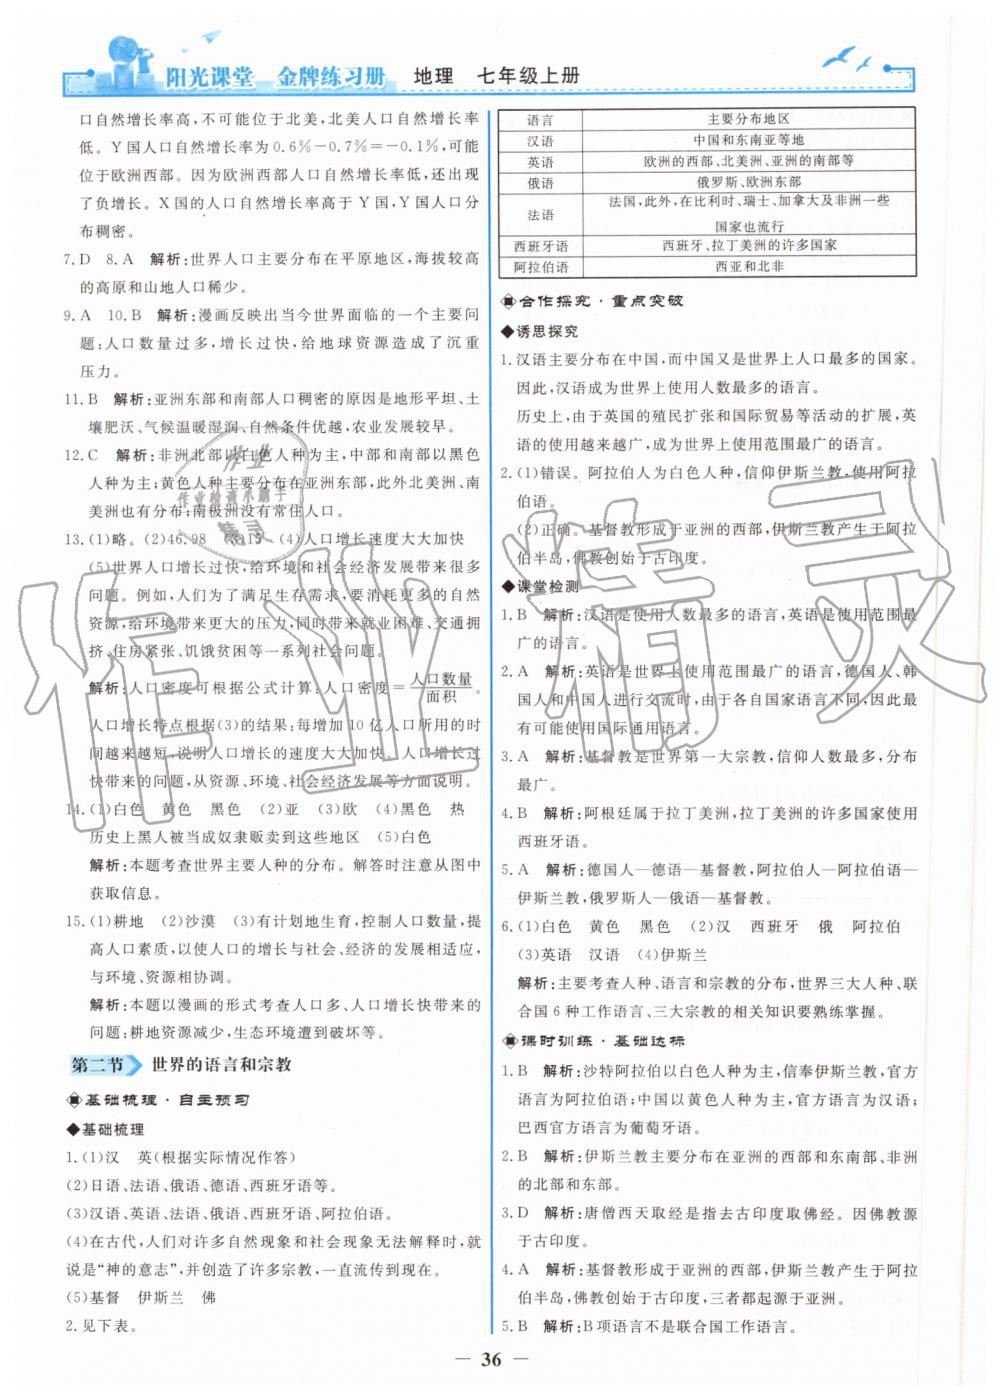 阳光课堂 金牌练习册 地理 七年级上册
口自然增长率高,不可能位于北美,北美人口自然增长率
低。Y国人口自然增长率为0.6%－0.7%＝－0.1%,可能
位于欧洲西部。因为欧洲西部人口自然增长率低,还出现
了负增长。X国的人口自然增长率高于Y国,Y国人口分
布稠密。
7.D 8.A 解析:世界人口主要分布在平原地区,海拔较高
的高原和山地人口稀少。
9.A 10.B 解析:漫画反映出当今世界面临的一个主要问
题:人口数量过多,增长过快,给地球资源造成了沉重
压力。
11.B 解析:亚洲东部和南部人口稠密的原因是地形平坦、土
壤肥沃、气候温暖湿润、自然条件优越,农业发展较早。
12.C 解析:非洲北部以白色人种为主,中部和南部以黑色
人种为主;黄色人种主要分布在亚洲东部,此外北美洲、南
美洲也有分布;南极洲没有常住人口。
13.(1)略。(2)46.98 (3)15 (4)人口增长速度大大加快
(5)世界人口增长过快,给环境和社会经济发展带来很多
问题。例如,人们为了满足生存需求,要消耗更多的自然
资源,给环境带来更大的压力,同时带来就业困难、交通拥
挤、住房紧张、饥饿贫困等一系列社会问题。
解析:人口密度可根据公式计算:人口密度＝人口数量/面积。
人口增长特点根据(3)的结果:每增加10亿人口所用的时
间越来越短,说明人口增长的速度大大加快。人口增长过
快带来的问题,从资源、环境、社会经济发展等方面说明。
14.(1)白色 黄色 黑色 (2)亚 (3)欧 (4)黑色 热
历史上黑人被当成奴隶贩卖到这些地区 (5)白色
解析:本题考查世界主要人种的分布。解答时注意从图中
获取信息。
15.(1)耕地 (2)沙漠 (3)有计划地生育,控制人口数量,提
高人口素质,以使人口的增长与社会、经济的发展相适应,
与环境、资源相协调。
解析:本题以漫画的形式考查人口多、人口增长快带来的
问题:耕地资源减少,生态环境遭到破坏等。
第二节 世界的语言和宗教
基础梳理·自主预习
◆基础梳理
1.(1)汉 英(根据实际情况作答)
(2)日语、法语、俄语、德语、西班牙语等。
(3)汉语、英语、法语、俄语、西班牙语、阿拉伯语。
(4)在古代,人们对许多自然现象和社会现象无法解释时,就
说是“神的意志”,并创造了许多宗教,一直流传到现在。
(5)基督 伊斯兰 佛
2.见下表。
语言 主要分布地区
汉语 中国和东南亚等地
英语 欧洲的西部、北美洲、亚洲的南部等
俄语 俄罗斯、欧洲东部
法语 法国,此外,在比利时、瑞士、加拿大及非洲一些
国家也流行
西班牙语 西班牙、拉丁美洲的许多国家
阿拉伯语 西亚和北非
合作探究·重点突破
◆诱思探究
1.汉语主要分布在中国,而中国又是世界上人口最多的国家。
因此,汉语成为世界上使用人数最多的语言。
历史上,由于英国的殖民扩张和国际贸易等活动的扩展,英
语的使用越来越广,成为世界上使用范围最广的语言。
2.(1)错误。阿拉伯人为白色人种,信仰伊斯兰教,使用阿拉
伯语。
(2)正确。基督教形成于亚洲的西部,伊斯兰教产生于阿拉
伯半岛,佛教创始于古印度。
◆课堂检测
1.B 解析:汉语是使用人数最多的语言,英语是使用范围最
广的语言。
2.A 解析:英语是世界上使用范围最广的语言,德国人、韩
国人和中国人进行交流时,由于各自国家语言不同,因此最
有可能使用国际通用语言。
3.A 解析:基督教是世界第一大宗教,信仰人数最多,分布
最广。
4.B 解析:阿根廷属于拉丁美洲,拉丁美洲的许多国家使用
西班牙语。
5.A 解析:德国人—德语—基督教,阿拉伯人—阿拉伯语—
伊斯兰教,俄罗斯人—俄语—基督教。
6.(1)白色 黄色 黑色 (2)汉 西班牙 俄 阿拉伯
(3)英语 汉语 (4)伊斯兰
解析:主要考查人种、语言和宗教的分布,世界三大人种、联
合国6种工作语言、三大宗教的相关知识要熟练掌握。
课时训练·基础达标
1.B 解析:沙特阿拉伯以白色人种为主,信奉伊斯兰教,官方
语言为阿拉伯语;中国以黄色人种为主,官方语言为汉语;
巴西官方语言为葡萄牙语。
2.B 解析:伊斯兰教主要分布在亚洲的西部和东南部、非洲
的北部和东部。
3.D 解析:唐僧西天取经是指去古印度取佛经。因佛教源
于古印度。
4.A 解析:基督教形成于亚洲的西部,伊斯兰教产生于阿拉
伯半岛,佛教创始于古印度,三者都起源于亚洲。
5.B 解析:B项语言不是联合国工作语言。
— 36 —
作业精灵